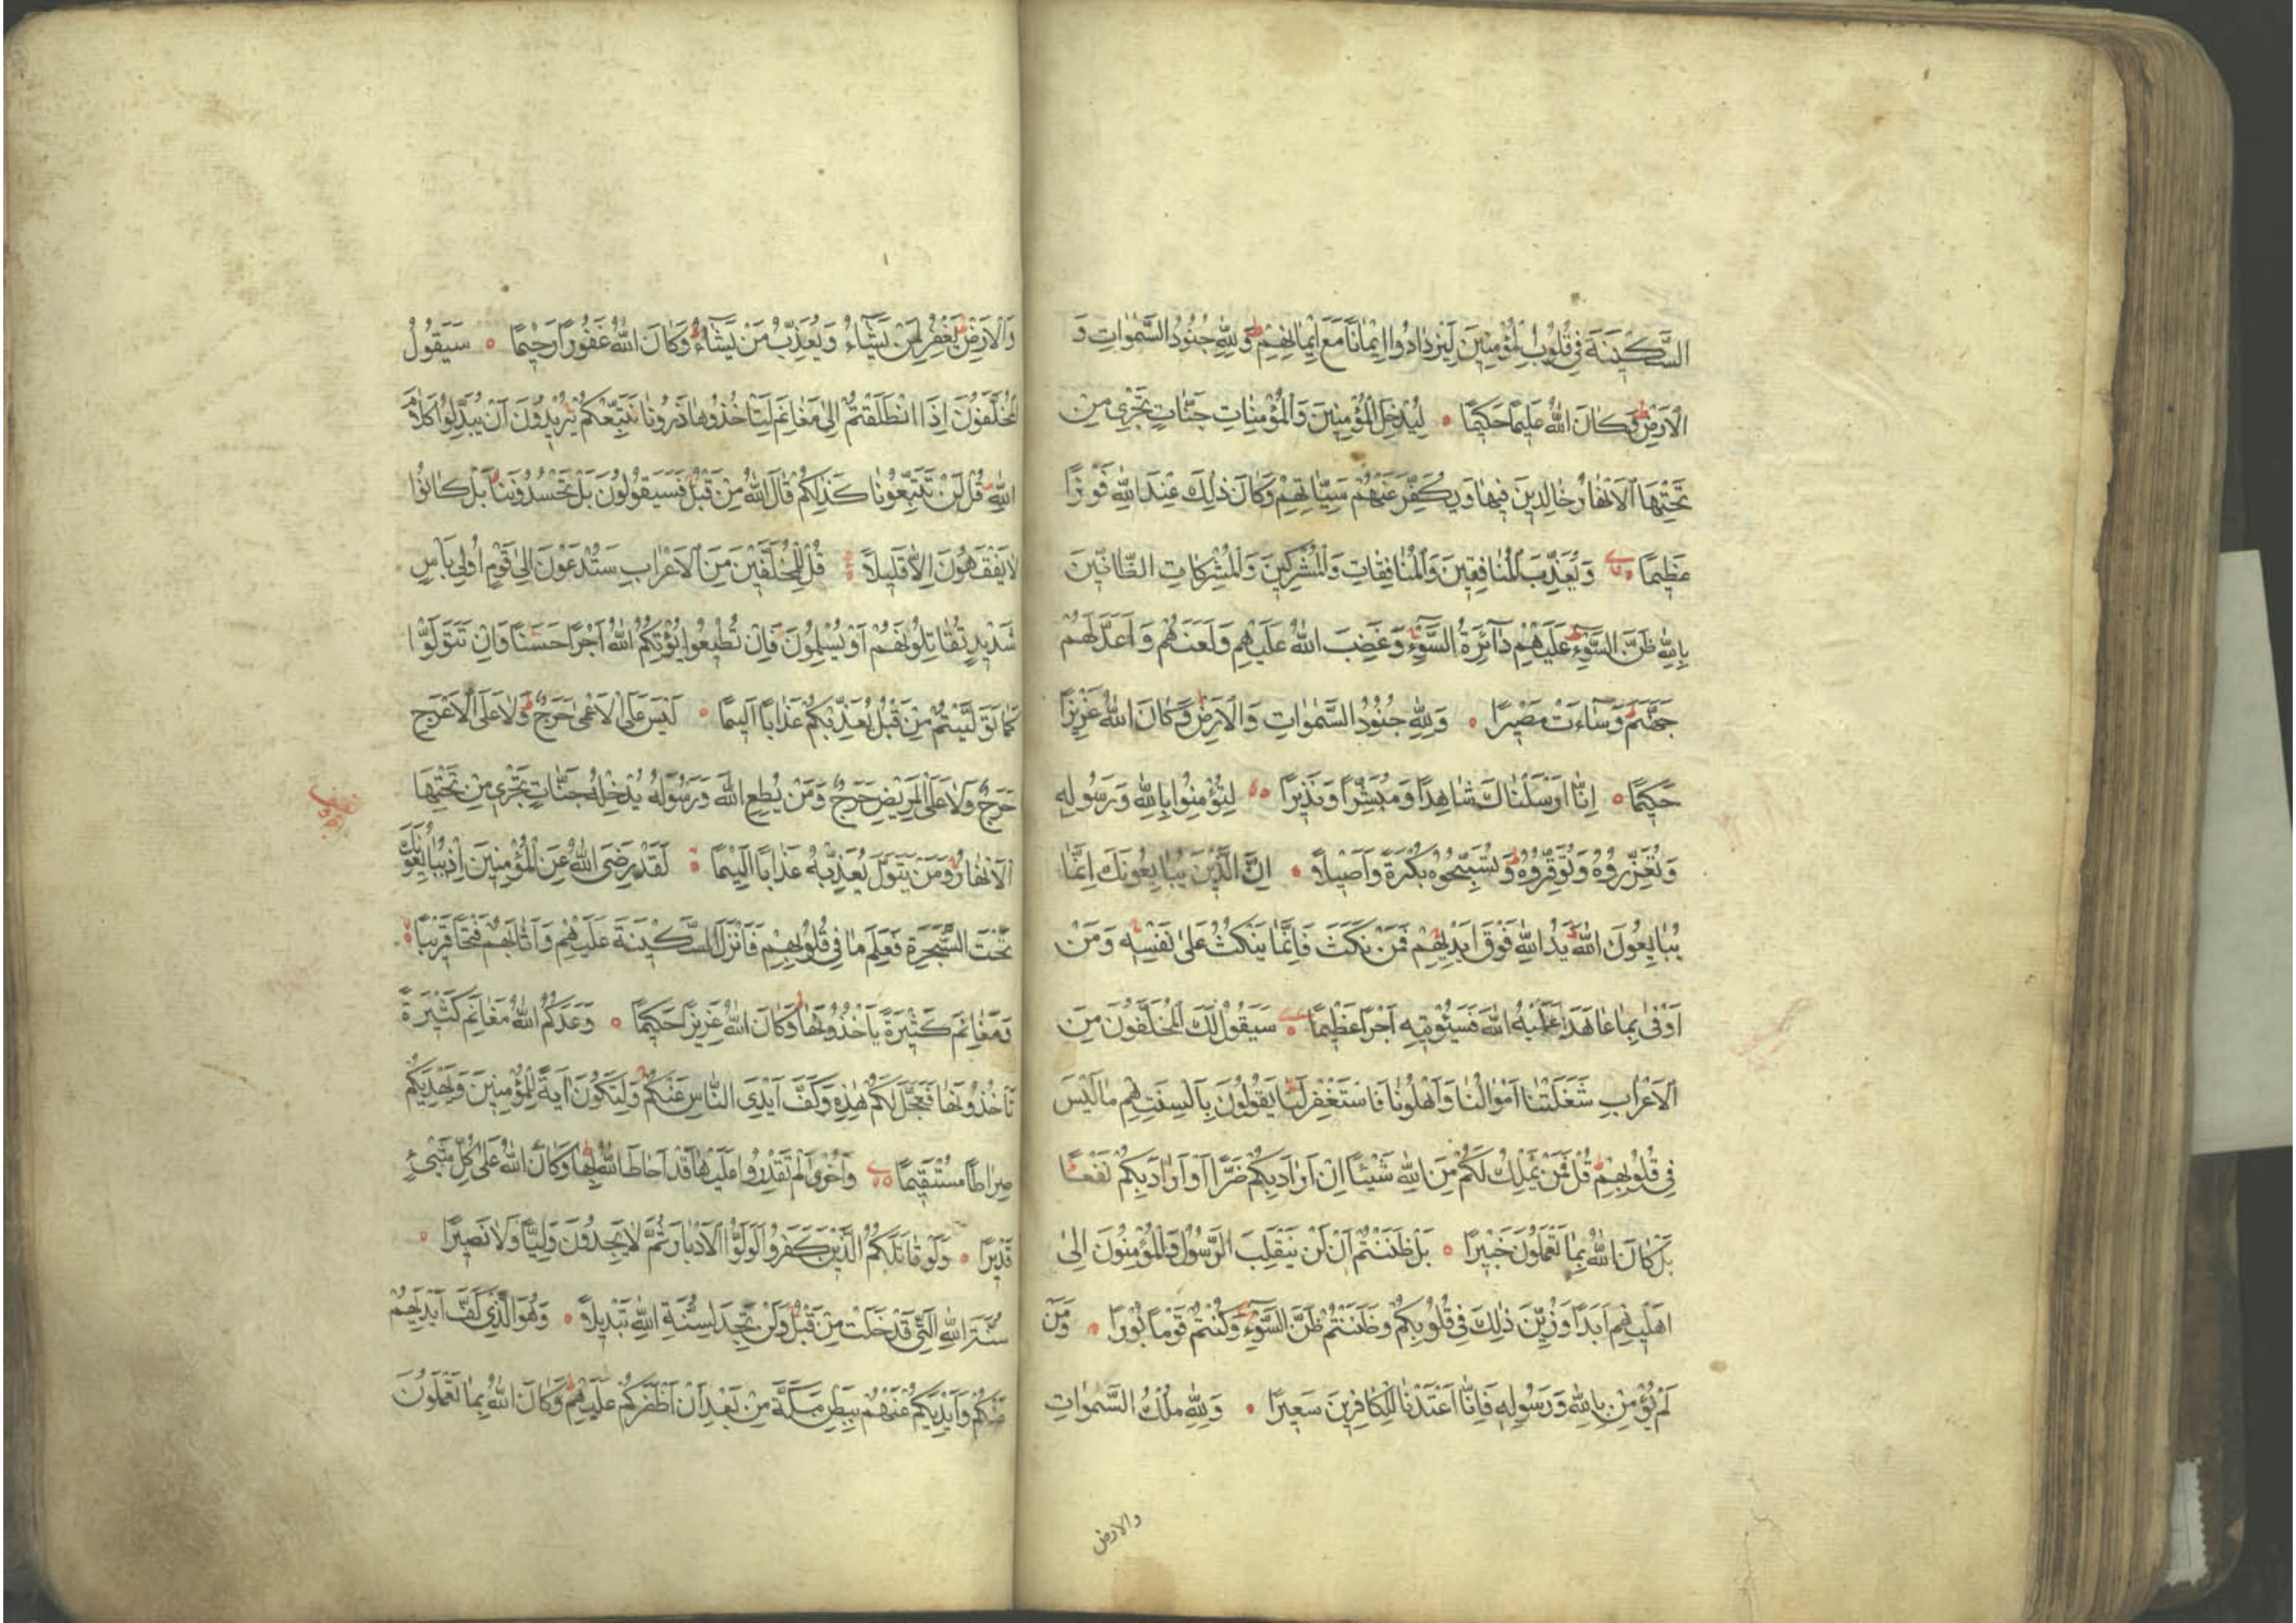 السَّكِينَةَ فِي قُلُوبِ الْمُؤْمِنِينَ لِيَزْدَادُوا إِيمَانًا مَعَ إِيمَانِهِمْ وَلِلّٰهِ جُنُودُ السَّمٰوَاتِ وَ
الْاَرْضِ وَكَانَ اللّٰهُ عَلِيمًا حَكِيمًا لِيُدْخِلَ الْمُؤْمِنِينَ وَالْمُؤْمِنَاتِ جَنَّاتٍ تَجْرِي مِنْ
تَحْتِهَا الْاَنْهَارُ خَالِدِينَ فِيهَا وَيُكَفِّرَ عَنْهُمْ سَيِّئَاتِهِمْ وَكَانَ ذٰلِكَ عِنْدَ اللّٰهِ فَوْزًا
عَظِيمًا وَيُعَذِّبَ الْمُنَافِقِينَ وَالْمُنَافِقَاتِ وَالْمُشْرِكِينَ وَالْمُشْرِكَاتِ الظَّانِّينَ
بِاللّٰهِ ظَنَّ السَّوْءِ عَلَيْهِمْ دَآئِرَةُ السَّوْءِ وَغَضِبَ اللّٰهُ عَلَيْهِمْ وَلَعَنَهُمْ وَاَعَدَّ لَهُمْ
جَهَنَّمَ وَسَآءَتْ مَصِيرًا وَلِلّٰهِ جُنُودُ السَّمٰوَاتِ وَالْاَرْضِ وَكَانَ اللّٰهُ عَزِيزًا
حَكِيمًا اِنَّا اَرْسَلْنَاكَ شَاهِدًا وَمُبَشِّرًا وَنَذِيرًا لِتُؤْمِنُوا بِاللّٰهِ وَرَسُولِهِ
وَتُعَزِّرُوهُ وَتُوَقِّرُوهُ وَتُسَبِّحُوهُ بُكْرَةً وَاَصِيلًا اِنَّ الَّذِينَ يُبَايِعُونَكَ اِنَّمَا
يُبَايِعُونَ اللّٰهَ يَدُ اللّٰهِ فَوْقَ اَيْدِيهِمْ فَمَنْ نَكَثَ فَاِنَّمَا يَنْكُثُ عَلٰى نَفْسِهِ وَمَنْ
اَوْفٰى بِمَا عَاهَدَ عَلَيْهُ اللّٰهَ فَسَيُؤْتِيهِ اَجْرًا عَظِيمًا سَيَقُولُ لَكَ الْمُخَلَّفُونَ مِنَ
الْاَعْرَابِ شَغَلَتْنَا اَمْوَالُنَا وَاَهْلُونَا فَاسْتَغْفِرْ لَنَا يَقُولُونَ بِاَلْسِنَتِهِمْ مَا لَيْسَ
فِي قُلُوبِهِمْ قُلْ فَمَنْ يَمْلِكُ لَكُمْ مِنَ اللّٰهِ شَيْئًا اِنْ اَرَادَ بِكُمْ ضَرًّا اَوْ اَرَادَ بِكُمْ نَفْعًا
بَلْ كَانَ اللّٰهُ بِمَا تَعْمَلُونَ خَبِيرًا بَلْ ظَنَنْتُمْ اَنْ لَنْ يَنْقَلِبَ الرَّسُولُ وَالْمُؤْمِنُونَ اِلٰى
اَهْلِيهِمْ اَبَدًا وَزُيِّنَ ذٰلِكَ فِي قُلُوبِكُمْ وَظَنَنْتُمْ ظَنَّ السَّوْءِ وَكُنْتُمْ قَوْمًا بُورًا وَمَنْ
لَمْ يُؤْمِنْ بِاللّٰهِ وَرَسُولِهِ فَاِنَّا اَعْتَدْنَا لِلْكَافِرِينَ سَعِيرًا وَلِلّٰهِ مُلْكُ السَّمٰوَاتِ
والارض
وَالْاَرْضِ يَغْفِرُ لِمَنْ يَشَآءُ وَيُعَذِّبُ مَنْ يَشَآءُ وَكَانَ اللّٰهُ غَفُورًا رَحِيمًا سَيَقُولُ
الْمُخَلَّفُونَ اِذَا انْطَلَقْتُمْ اِلٰى مَغَانِمَ لِتَاْخُذُوهَا ذَرُونَا نَتَّبِعْكُمْ يُرِيدُونَ اَنْ يُبَدِّلُوا كَلَامَ
اللّٰهِ قُلْ لَنْ تَتَّبِعُونَا كَذٰلِكُمْ قَالَ اللّٰهُ مِنْ قَبْلُ فَسَيَقُولُونَ بَلْ تَحْسُدُونَنَا بَلْ كَانُوا
لَا يَفْقَهُونَ اِلَّا قَلِيلًا قُلْ لِلْمُخَلَّفِينَ مِنَ الْاَعْرَابِ سَتُدْعَوْنَ اِلٰى قَوْمٍ اُولِي بَاْسٍ
شَدِيدٍ تُقَاتِلُونَهُمْ اَوْ يُسْلِمُونَ فَاِنْ تُطِيعُوا يُؤْتِكُمُ اللّٰهُ اَجْرًا حَسَنًا وَاِنْ تَتَوَلَّوْا
كَمَا تَوَلَّيْتُمْ مِنْ قَبْلُ يُعَذِّبْكُمْ عَذَابًا اَلِيمًا لَيْسَ عَلَى الْاَعْمٰى حَرَجٌ وَلَا عَلَى الْاَعْرَجِ
حَرَجٌ وَلَا عَلَى الْمَرِيضِ حَرَجٌ وَمَنْ يُطِعِ اللّٰهَ وَرَسُولَهُ يُدْخِلْهُ جَنَّاتٍ تَجْرِي مِنْ تَحْتِهَا
الْاَنْهَارُ وَمَنْ يَتَوَلَّ يُعَذِّبْهُ عَذَابًا اَلِيمًا لَقَدْ رَضِيَ اللّٰهُ عَنِ الْمُؤْمِنِينَ اِذْ يُبَايِعُونَكَ
تَحْتَ الشَّجَرَةِ فَعَلِمَ مَا فِي قُلُوبِهِمْ فَاَنْزَلَ السَّكِينَةَ عَلَيْهِمْ وَاَثَابَهُمْ فَتْحًا قَرِيبًا
وَمَغَانِمَ كَثِيرَةً يَاْخُذُونَهَا وَكَانَ اللّٰهُ عَزِيزًا حَكِيمًا وَعَدَكُمُ اللّٰهُ مَغَانِمَ كَثِيرَةً
تَاْخُذُونَهَا فَعَجَّلَ لَكُمْ هٰذِهِ وَكَفَّ اَيْدِيَ النَّاسِ عَنْكُمْ وَلِتَكُونَ اٰيَةً لِلْمُؤْمِنِينَ وَيَهْدِيَكُمْ
صِرَاطًا مُسْتَقِيمًا وَاُخْرٰى لَمْ تَقْدِرُوا عَلَيْهَا قَدْ اَحَاطَ اللّٰهُ بِهَا وَكَانَ اللّٰهُ عَلٰى كُلِّ شَيْءٍ
قَدِيرًا وَلَوْ قَاتَلَكُمُ الَّذِينَ كَفَرُوا لَوَلَّوُا الْاَدْبَارَ ثُمَّ لَا يَجِدُونَ وَلِيًّا وَلَا نَصِيرًا
سُنَّةَ اللّٰهِ الَّتِي قَدْ خَلَتْ مِنْ قَبْلُ وَلَنْ تَجِدَ لِسُنَّةِ اللّٰهِ تَبْدِيلًا وَهُوَ الَّذِي كَفَّ اَيْدِيَهُمْ
عَنْكُمْ وَاَيْدِيَكُمْ عَنْهُمْ بِبَطْنِ مَكَّةَ مِنْ بَعْدِ اَنْ اَظْفَرَكُمْ عَلَيْهِمْ وَكَانَ اللّٰهُ بِمَا تَعْمَلُونَ